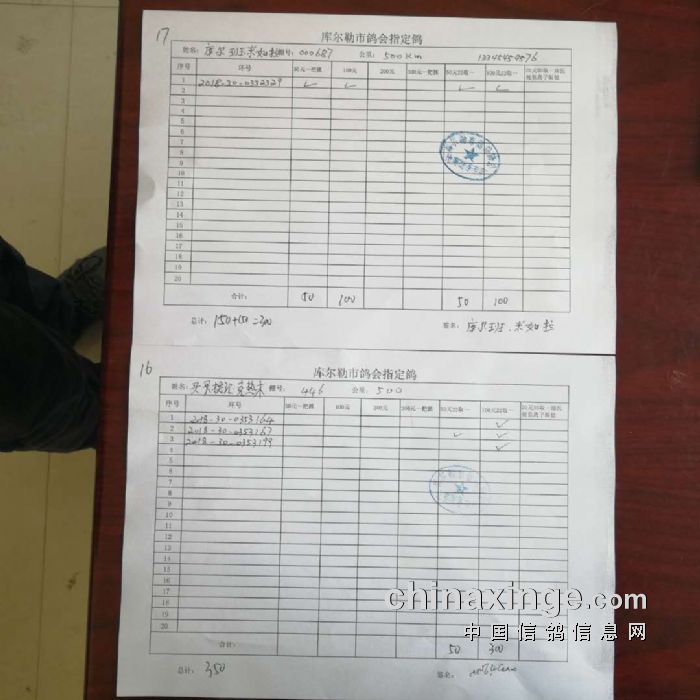 17
库尔勒市鸽会指定鸽
姓名: 库尔班 米如拉 棚号: 000687 公里: 500Km
序号 环号 50元一把抓 100元 200元 500元一把抓 50元22取一 100元22取一
1 2018-30-0352329 ✓ ✓ ✓ ✓
2
3
4
5
6
7
8
9
10
11
12
13
14
15
16
17
18
19
20
合计: 50 100 50 100
总计: 150+150=300 签名: 库尔班.米如拉
16
库尔勒市鸽会指定鸽
姓名: 棚号: 446 公里: 500
序号 环号 50元一把抓 100元 200元 500元一把抓 50元22取一 100元22取一
1 2018-30-0353164 ✓
2 2018-30-0353167 ✓ ✓
3 2018-30-0353199 ✓
4
5
6
7
8
9
10
11
12
13
14
15
16
17
18
19
20
合计: 50 300
总计: 350 签名:
chinaxinge.com
中国信鸽信息网